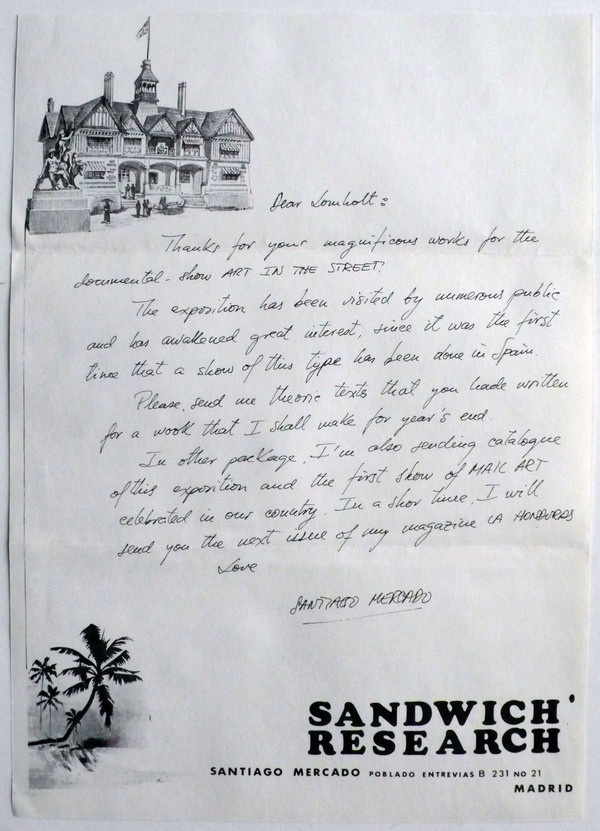 Dear Lomholt:
Thanks for your magnificous works for the
documental-show ART IN THE STREET.
The exposition has been visited by numerous public
and has awakened great interest, since it was the first
time that a show of this type has been done in Spain.
Please, send me theoric texts that you hade written
for a wook that I shall make for year's end.
In other package, I'm also sending catalogue
of this exposition and the first show of MAIL ART
celebrated in our country. In a shor time, I will
send you the next issue of my magazine LA HONDURAS
Love
SANTIAGO MERCADO
SANDWICH'
RESEARCH
SANTIAGO MERCADO POBLADO ENTREVIAS B 231 NO 21
MADRID